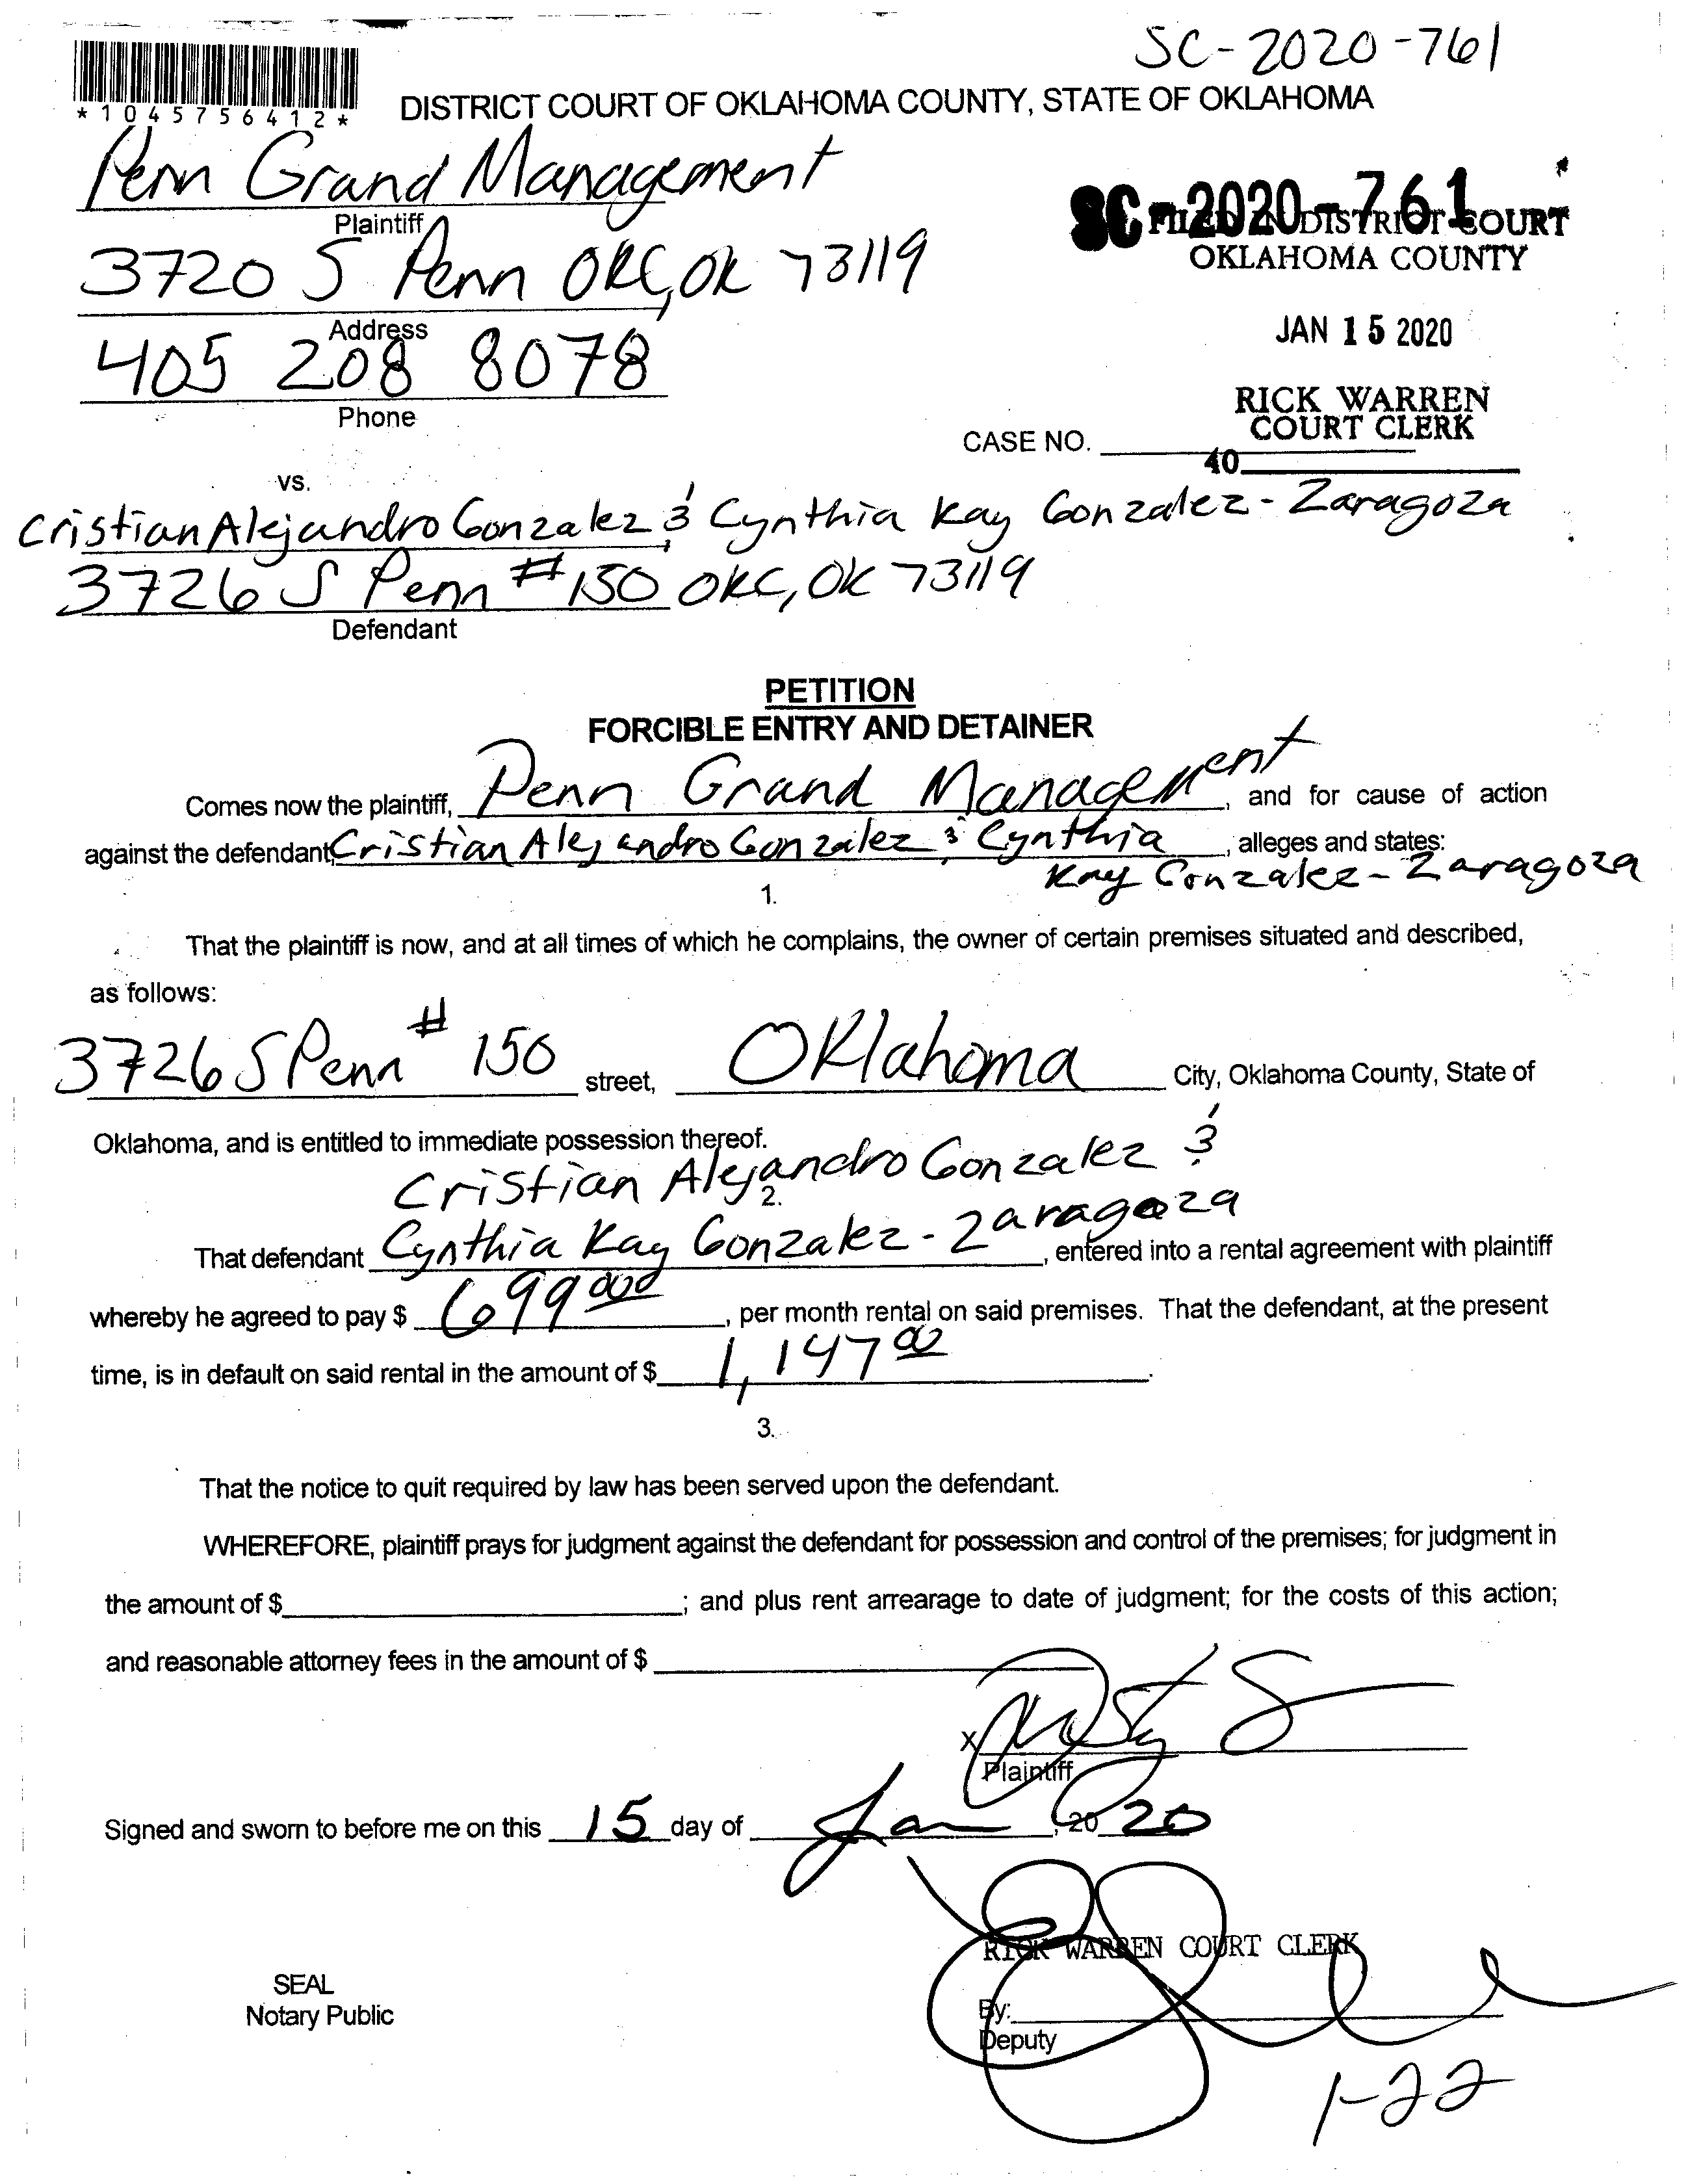 SC-2020-761
*1045756412*
DISTRICT COURT OF OKLAHOMA COUNTY, STATE OF OKLAHOMA
Penn Grand Management
Plaintiff
SC-2020-761
FILED IN DISTRICT COURT
OKLAHOMA COUNTY
3720 S Penn OKC, OK 73119
Address
JAN 15 2020
405 208 8078
Phone
RICK WARREN
COURT CLERK
CASE NO.
40
vs.
Cristian Alejandro Gonzalez & Cynthia Kay Gonzalez-Zaragoza
3726 S Penn #150 OKC, OK 73119
Defendant
PETITION
FORCIBLE ENTRY AND DETAINER
Comes now the plaintiff, Penn Grand Management, and for cause of action
against the defendant Cristian Alejandro Gonzalez & Cynthia, alleges and states:
Kay Gonzalez-Zaragoza
1.
That the plaintiff is now, and at all times of which he complains, the owner of certain premises situated and described,
as follows:
3726 S Penn # 150 street, Oklahoma City, Oklahoma County, State of
Oklahoma, and is entitled to immediate possession thereof.
Cristian Alejandro Gonzalez &
2.
That defendant Cynthia Kay Gonzalez-Zaragoza, entered into a rental agreement with plaintiff
whereby he agreed to pay $ 699 00, per month rental on said premises. That the defendant, at the present
time, is in default on said rental in the amount of $ 1,147 00.
3.
That the notice to quit required by law has been served upon the defendant.
WHEREFORE, plaintiff prays for judgment against the defendant for possession and control of the premises; for judgment in
the amount of $ ; and plus rent arrearage to date of judgment; for the costs of this action;
and reasonable attorney fees in the amount of $
X
Plaintiff
Signed and sworn to before me on this 15 day of Jan, 20 20
RICK WARREN COURT CLERK
SEAL
Notary Public
By:
Deputy
1-22